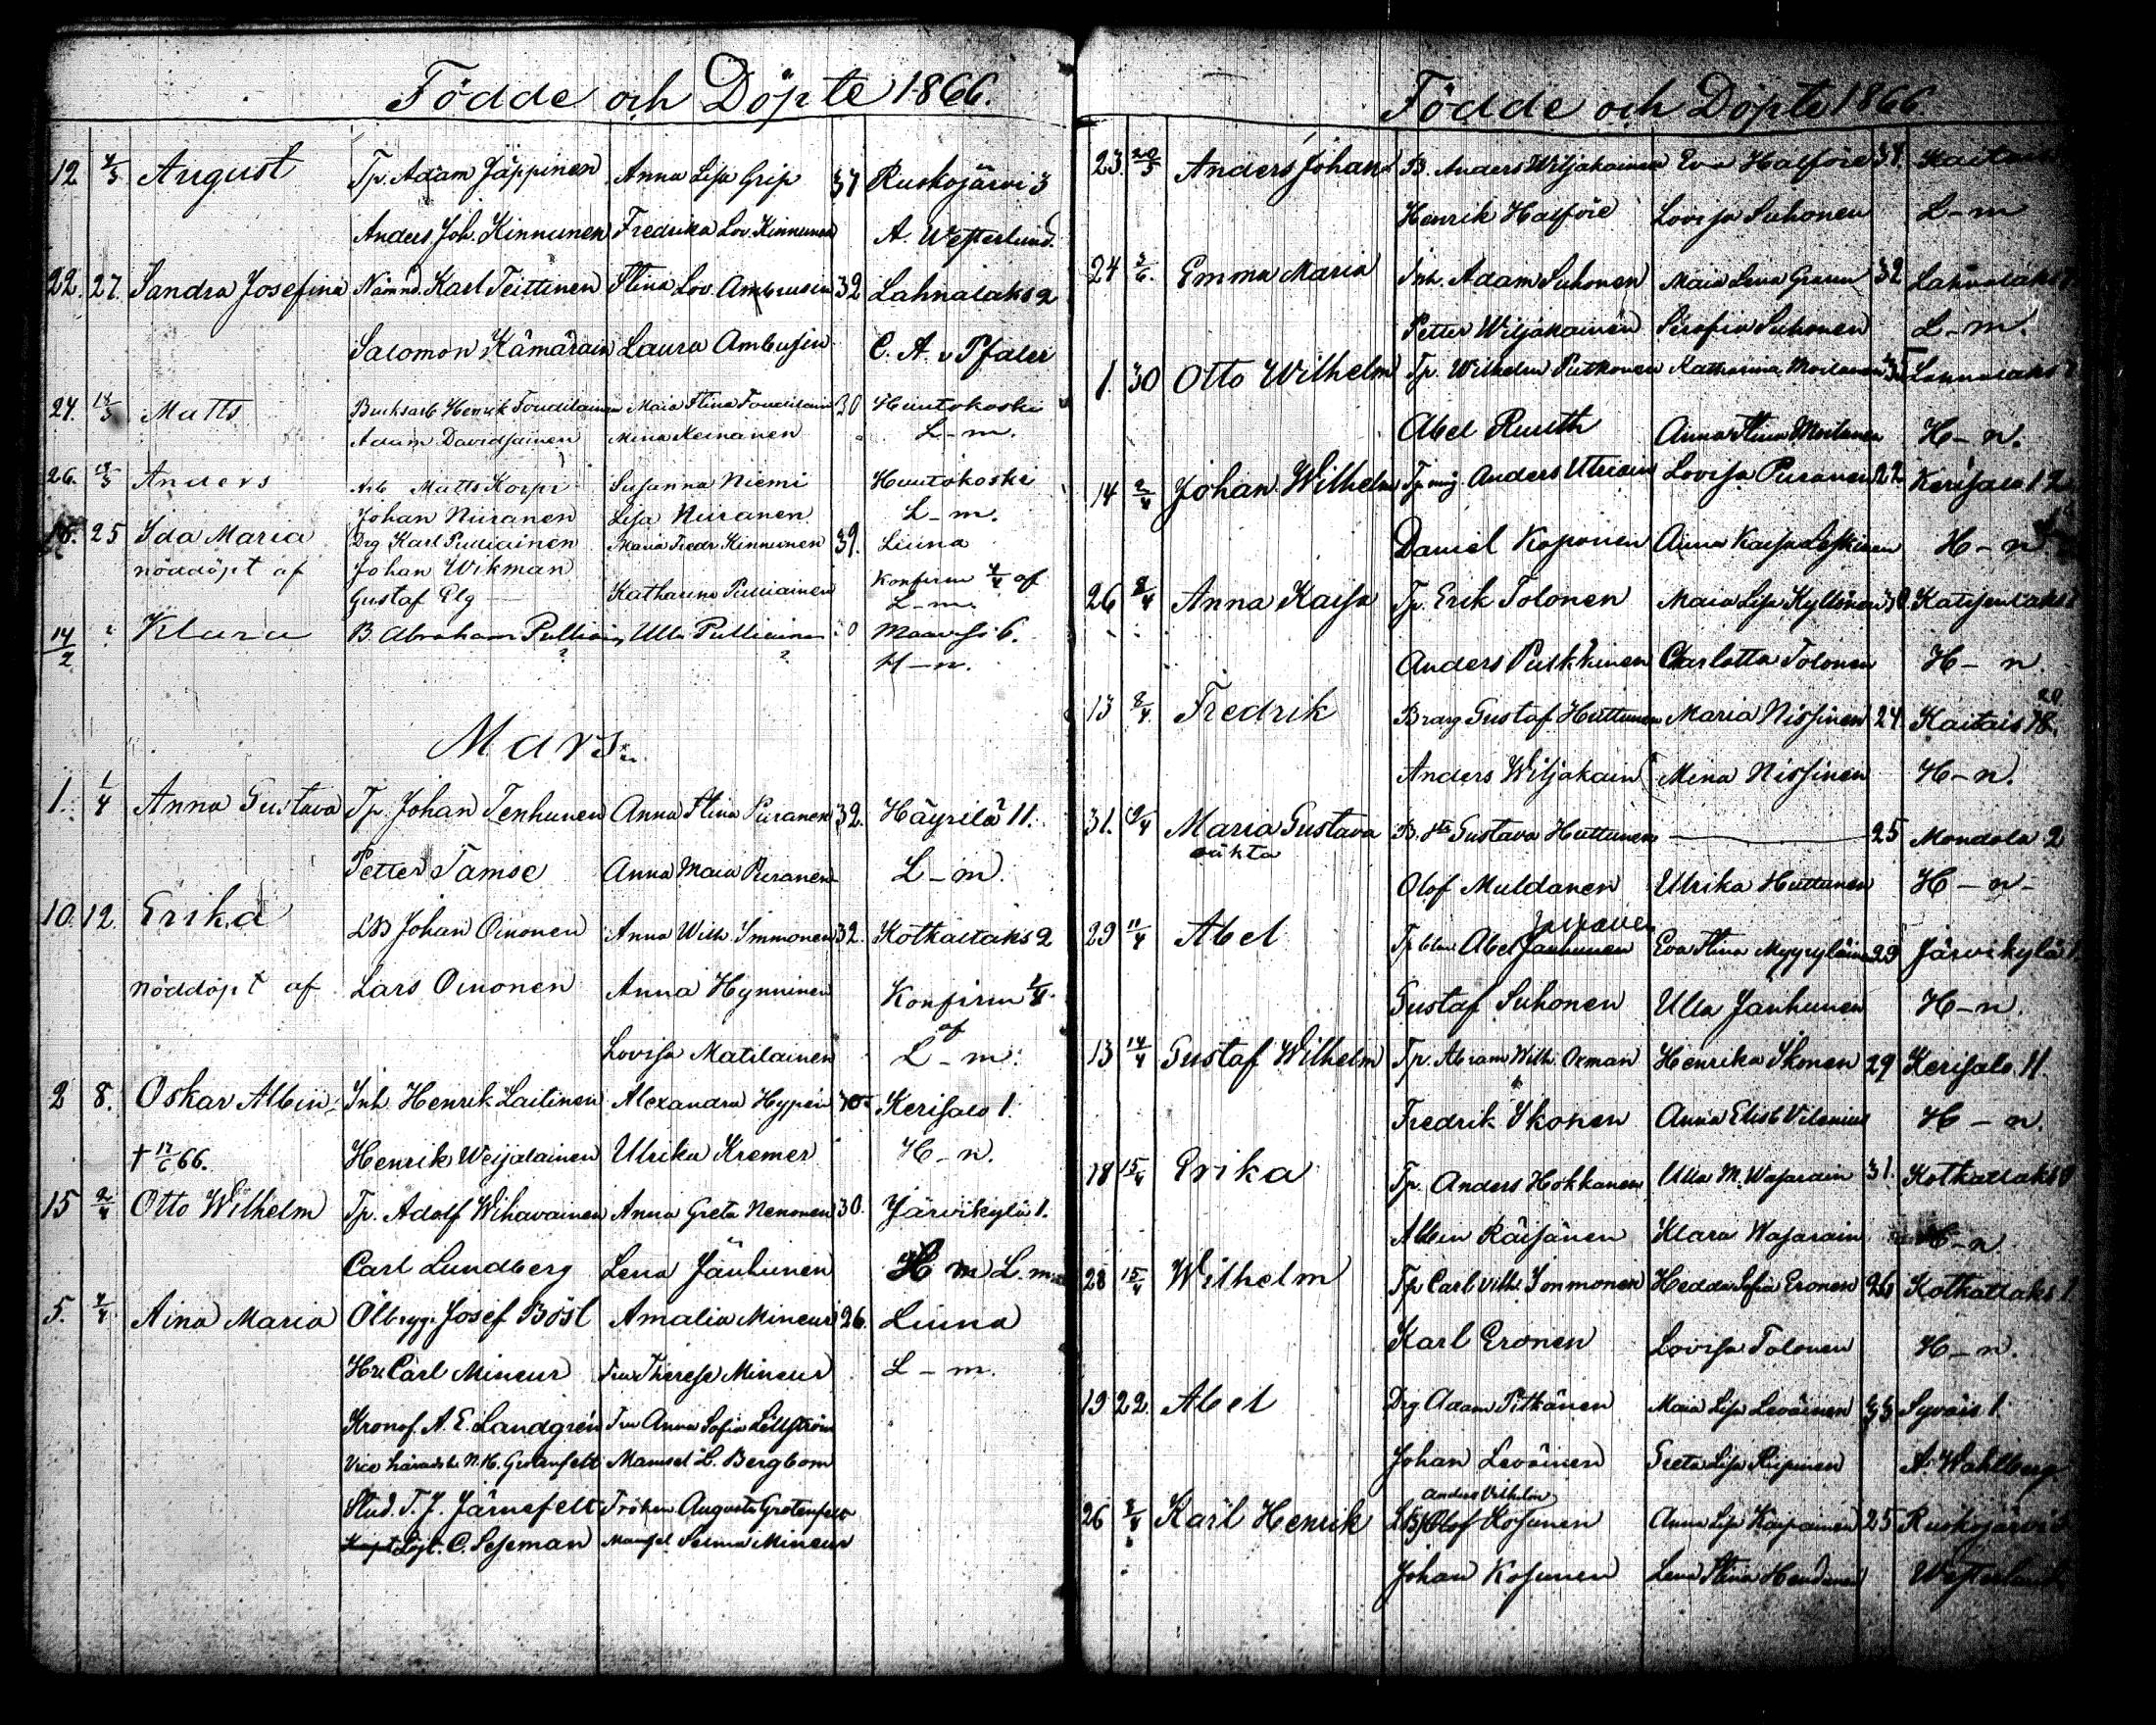 Födde och Döpte 1866.
12 4/3 August Tp. Adam Jäppinen Anna Lisa Grip 37 Ruskojärvi 3
Anders Joh. Kinnunen Fredrika Lov. Kinnunen A. Westerlund.
22. 27. Sandra Josefina Nämnd. Karl Teittinen Stina Lov. Ambrusin 32 Lahnalaks 2
Salomon Kämäräin Laura Ambusin C. A. v Pfaler
24. 18/3 Matts Henrik Maia Stina 30 Huutokoski
Adam Davidsainen Mina Keinanen L-m.
26. 18/3 Anders Arb Matts Korpi Susanna Niemi Huutokoski
Johan Niiranen Lisa Niiranen L-m.
25 Ida Maria Drg Karl Pulliainen Maria Fredr Kinnunen 39. Liuna
nöddöpt af Johan Wikman
Gustaf Plg Katharina Pulliainen Konfirm 4/4 af
L-m.
14/2 ? Klara B. Abraham Pulliain Ulla Pulliainen Maavesi 6.
? ? H-n.
Mars.
1. 1/4 Anna Gustava Tp. Johan Tenhunen Anna Stina Puranen 32. Häyrilä 11.
Petter Tamse Anna Maia Puranen L-m.
10. 12. Erika LB Johan Oinonen Anna Wilh. Immonen 32. Kotkatlaks 2
nöddöpt af Lars Oinonen Anna Hynninen Konfirm 2/4
af
Lovisa Matilainen L-m.
2 8. Oskar Albin Inh. Henrik Laitinen Alexandra Hypén 40 Kerisalo 1.
† 17/6 66. Henrik Weijalainen Ulrika Kremer H-n.
15 2/4 Otto Wilhelm Tp. Adolf Wihavainen Anna Greta Nenonen 30. Järvikylä 1.
Carl Lundberg Lena Jänhunen L-m
5. 4/4 Aina Maria Ölbrygg. Josef Bösl Amalia Mineur 26. Liuna
Hr Carl Mineur Fru Therese Mineur L-m.
Kronof. A. E. Landgrén Fru Anna Sofia
Vice häradsh. N. H. Grotenfelt Mamsel L. Bergbom
Stud. T. J. Järnefelt Fröken Augusta Grotenfelt
Löjt. C. Seseman Mamsel Selma Mineur
Födde och Döpte 1866.
23. 20/5 Anders Johan B. Anders Wiljakainen Eva Halföre 34.
Henrik Halföre Lovisa Suhonen L-m
24 3/6. Emma Maria Inh. Adam Suhonen Maia Lena 32 Lahnalaks
Petter Wiljakainen Serafia Suhonen L-m.
1. 30 Otto Wilhelm Tp. Wilhelm Putkonen Katharina Moilanen 35 Lahnalaks
Abel Ruuth Anna Stina Moilanen H-n.
14 2/4 Johan Wilhelm Tp mg. Anders Utriain Lovisa Puranen 22 Kerisalo 12
Daniel Koponen Anna Kaisa Leskinen H-n
26 8/4 Anna Kaisa Tp. Erik Tolonen Maia Lisa Kyllönen
Anders Pulkkinen Charlotta Tolonen H-n
13 8/4. Fredrik Gustaf Huttunen Maria Nissinen 24 Kaitais
Anders Wiljakain Mina Nissinen H-n.
31. Maria Gustava B. Gustava Huttunen 25 Mondola 2
oäkta
Olof Muldanen Ulrika Huttunen H-n-
29 11/4 Abel Tp Abel Janhunen Eva Stina 29 Järvikylä 1.
Gustaf Suhonen Ulla Jänhunen H-n.
13 14/4 Gustaf Wilhelm Tp. Abram Wilh. Orman Henrika Ikonen 29 Kerisalo 11
Fredrik Ikonen Anna Elisb Vilenius H-n.
18 15/4 Erika Tp. Anders Hokkanen Ulla M. Wasarain 31. Kotkatlaks
Albin Räisänen Klara Wasarain H-n
28 15/4 Wilhelm Tp Carl Vilh. Immonen Hedda Sofia Eronen 26 Kotkatlaks 1
Karl Eronen Lovisa Tolonen H-n.
19 22. Abel Drg. Adam Pitkänen Maia Lisa Leväinen 33 Syväis 1
Johan Leväinen Greta Lisa Riipinen A. Wahlberg
Anders Vilhelm
26 Karl Henrik Olof Kosunen Anna Lisa 25 Ruskojärvi
Johan Kosunen Lena Stina Westerlund